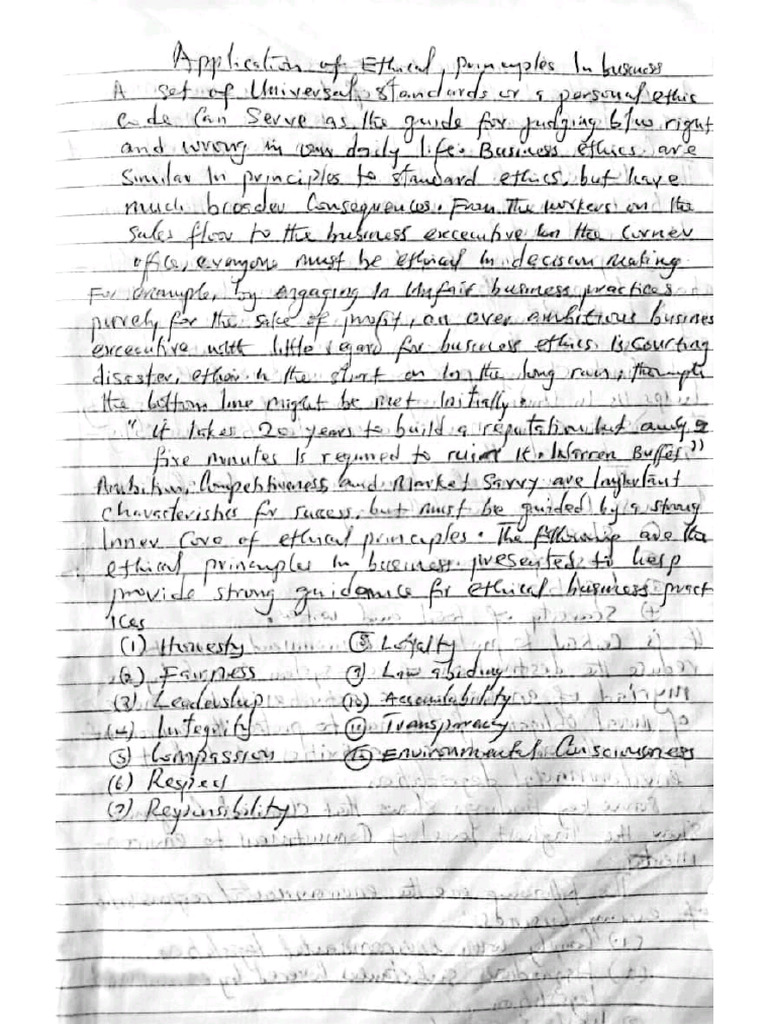 Application of Ethical, principles In business
A set of Universal, standards or a personal ethic
Code Can Serve as the guide for judging b/w right
and wrong in our daily life. Business ethics are
Similar In principles to standard ethics, but have
much broader Consequences. From the workers on the
Sales floor to the business excecutive in the Corner
office, everyone must be ethical in decision making
For example, by engaging In Unfair business practices
purely for the sake of profit, an over ambitious busines
excecutive with little regard for business ethics Is Courting
disaster, either in the start or In the long run, though
the bottom line might be met Initially.
"It takes 20 years to build a reputation but only
five minutes Is required to ruin It. Warren Buffet"
Ambition, Competitiveness, and Market Savvy are Important
characteristics for success, but must be guided by a strong
Inner Core of ethical principles. The following are the
ethical principles In business presented to help
provide strong guidance for ethical business pract
Ices
(1) Honesty (8) Loyalty
(2) Fairness (9) Law abiding
(3) Leadership (10) Accountability
(4) Integrity (11) Transparacy
(5) Compassion (12) Environmental Consciousness
(6) Respect
(7) Responsibility